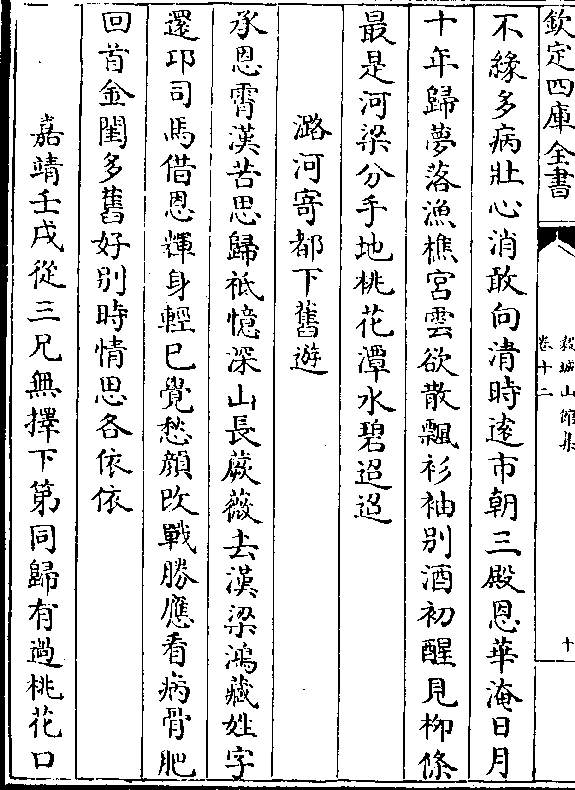 欽定四庫全書
穀城山館集
卷十二
十
不緣多病壯心消敢向清時遠市朝三殿恩華淹日月
十年歸夢落漁樵宮雲欲散飄衫袖别酒初醒見柳條
最是河梁分手地桃花潭水碧迢迢
潞河寄都下舊遊
承恩霄漢苦思歸祗憶深山長蕨薇去漢梁鴻藏姓字
還邛司馬借恩輝身輕已覺愁顔改戰勝應看病骨肥
回首金閨多舊好别時情思各依依
嘉靖壬戌從三兄無擇下第同歸有過桃花口